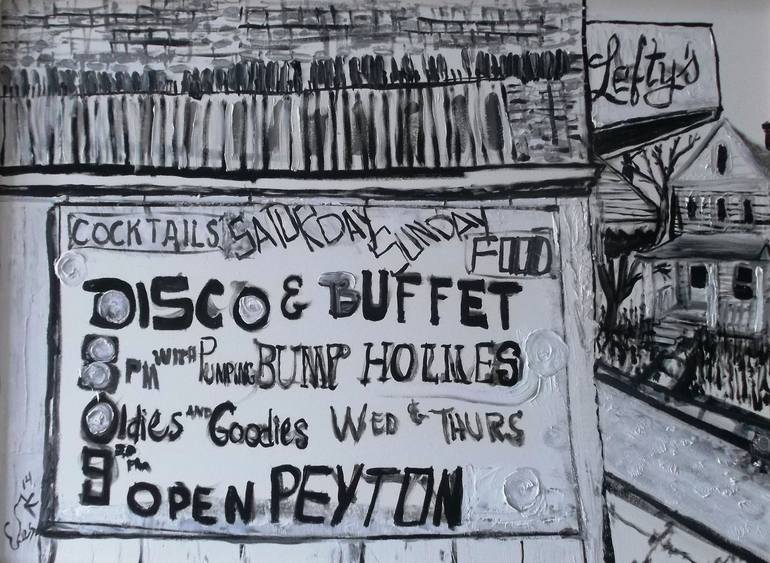 Lefty's
COCKTAILS SATURDAY SUNDAY FOOD
DISCO & BUFFET
8 PM WITH PUMPING BUMP HOLMES
Oldies AND Goodies WED & THURS
9 PM OPEN PEYTON
14